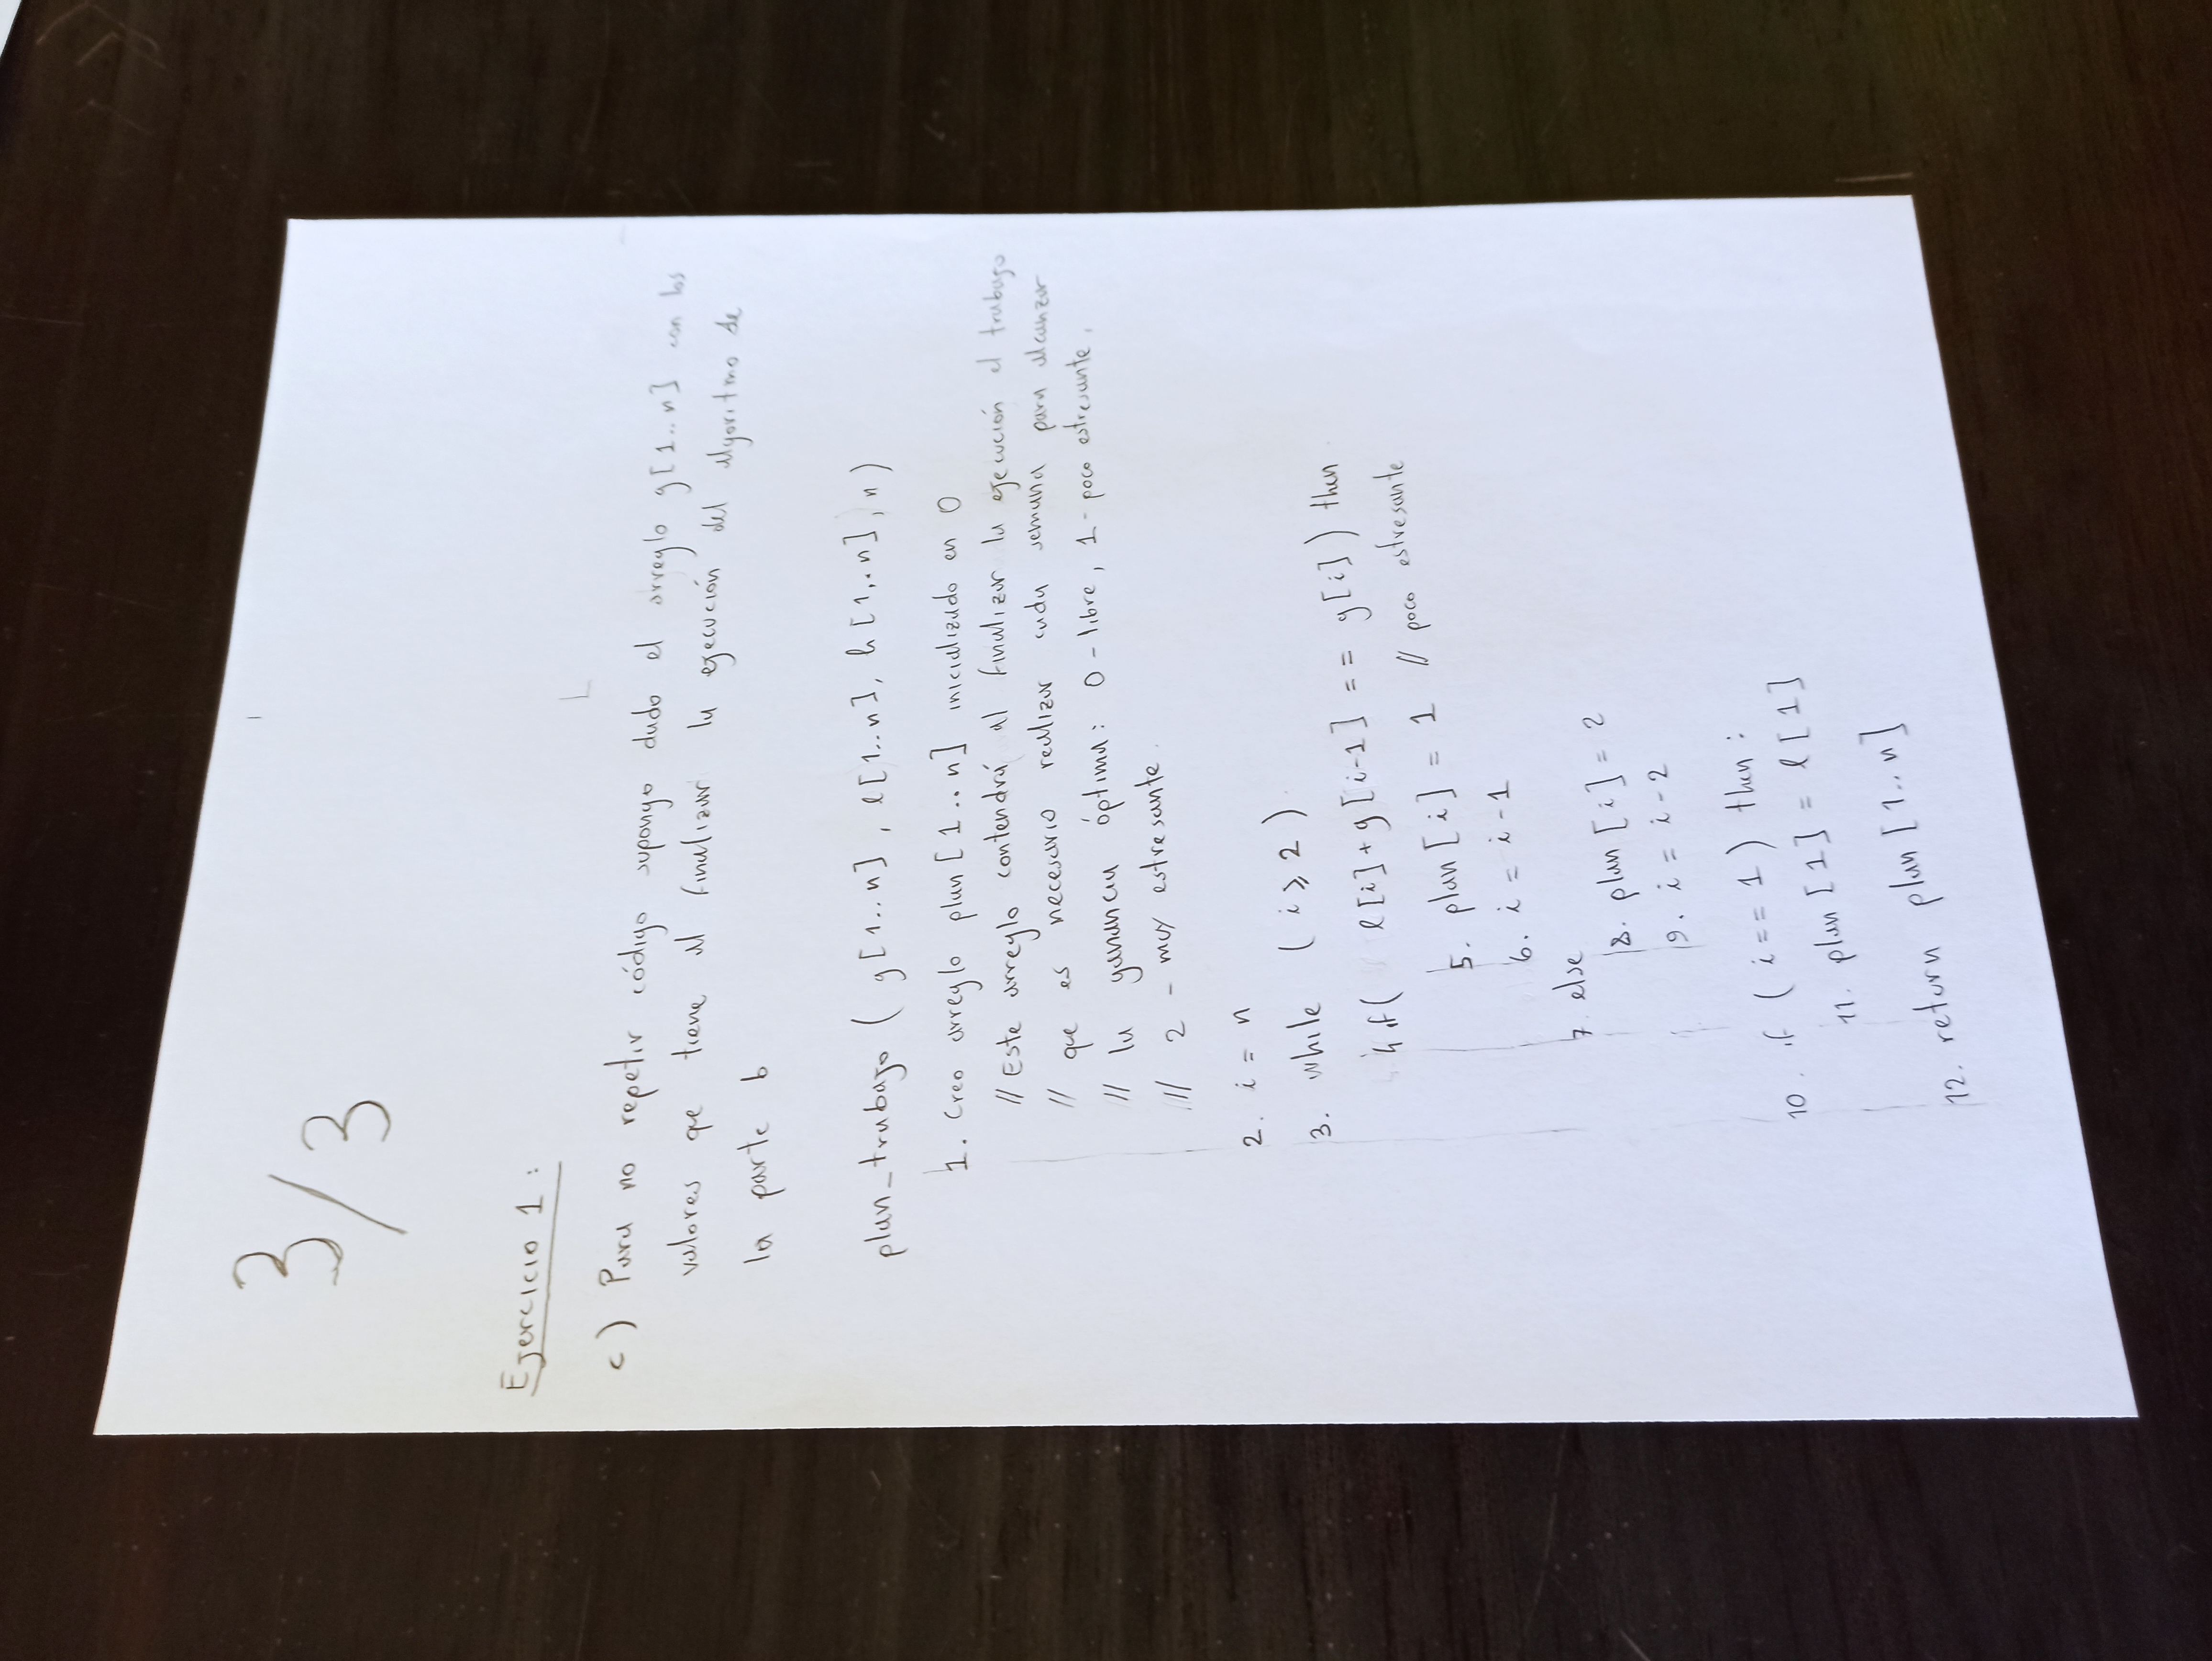 3/3
Ejercicio 1:
c) Para no repetir código supongo dado el arreglo g[1..n] con los
valores que tiene al finalizar la ejecución del algoritmo de
la parte b
plan_trabajo (g[1..n], l[1..n], h[1..n], n)
1. Creo arreglo plan[1..n] inicializado en 0
// Este arreglo contendrá al finalizar la ejecución el trabajo
// que es necesario realizar cada semana para alcanzar
// la ganancia óptima: 0 - libre, 1 - poco estresante,
// 2 - muy estresante.
2. i = n
3. while (i ≥ 2)
4. if ( l[i]+g[i-1] == g[i]) then
5. plan[i] = 1 // poco estresante
6. i = i - 1
7. else
8. plan[i] = 2
9. i = i - 2
10. if (i == 1) then:
11. plan[1] = l[1]
12. return plan[1..n]